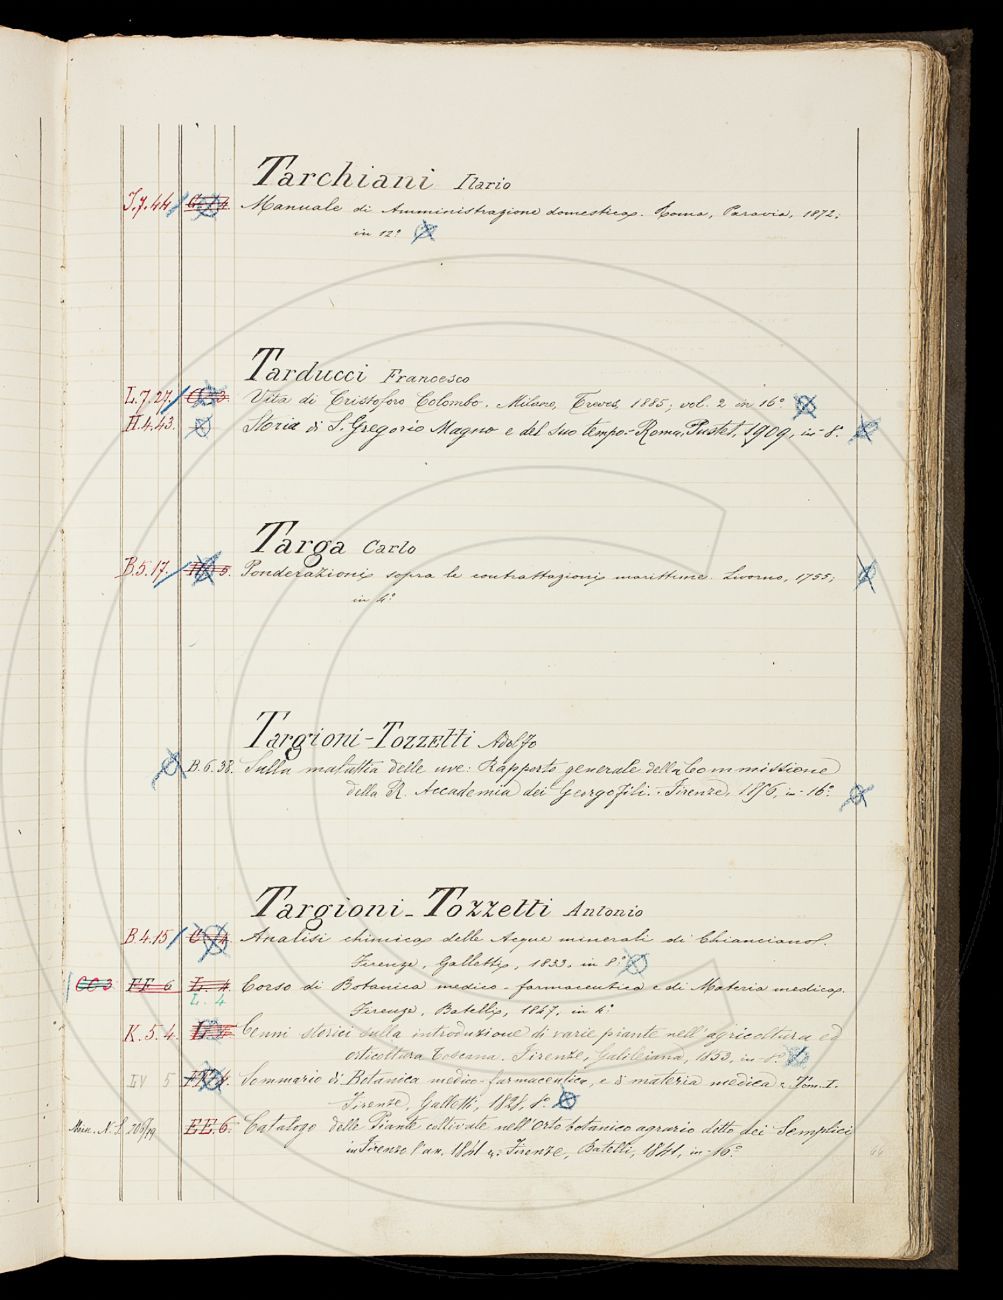 Tarchiani Ilario
I.7.44 Manuale di Amministrazione domestica. Roma, Paravia, 1872;
in 12º
Tarducci Francesco
L.7.27. Vita di Cristoforo Colombo. Milano, Treves, 1885; vol. 2 in 16º
H.4.43. Storia di S. Gregorio Magno e del suo tempo - Roma, Pustet, 1909, in-8º.
Targa Carlo
B.5.17. Ponderazioni sopra le contrattazioni marittime. Livorno, 1755;
in 4º
Targioni-Tozzetti Adolfo
B.6.38. Sulla malattia delle uve: Rapporto generale della Commissione
della R. Accademia dei Georgofili. - Firenze, 1856, in-16º.
Targioni-Tozzetti Antonio
B.4.15 Analisi chimica delle Acque minerali di Chianciano.
Firenze, Galletti, 1833, in 8º
CC 3 FF 6 L. 4 Corso di Botanica medico-farmaceutica e di Materia medica.
L. 4 Firenze, Batelli, 1847, in 4º
K.5.4. Cenni storici sulla introduzione di varie piante nell'agricoltura ed
orticoltura Toscana. Firenze, Galileiana, 1853, in-8º.
LV 5 Sommario di Botanica medico-farmaceutica, e di materia medica. Tom. I.
Firenze, Galletti, 1828, 8º.
EE.6. Catalogo delle Piante coltivate nell'Orto botanico agrario detto dei Semplici
in Firenze l'an. 1841 - Firenze, Batelli, 1841, in-16º